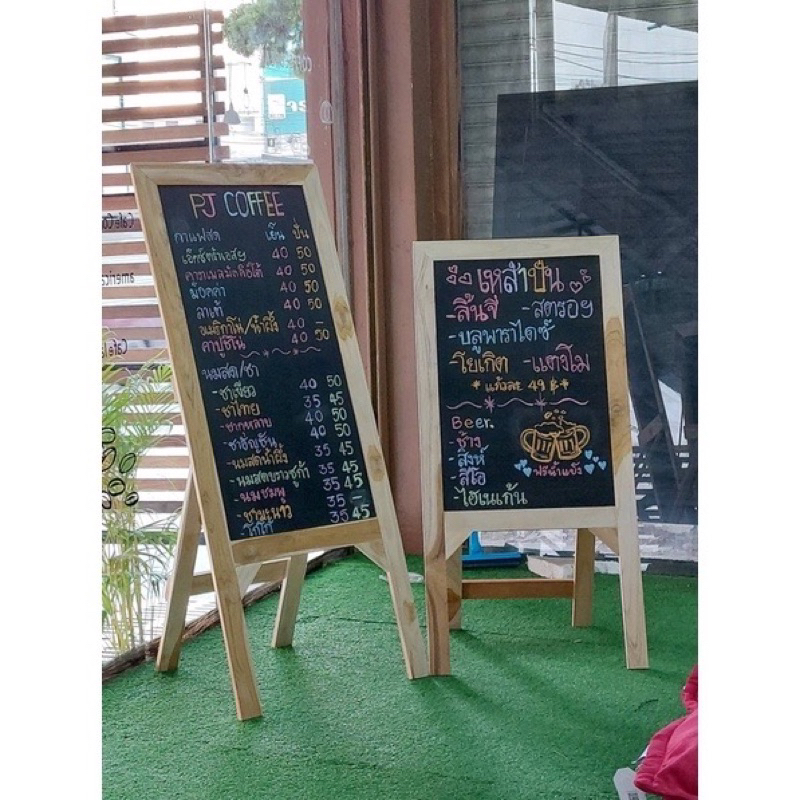 PJ COFFEE
กาแฟสด เย็น ปั่น
เอ็กซ์ตร้าเอสฯ 40 50
คาราเมลมัคคิอาโต้ 40 50
ม็อคค่า 40 50
ลาเต้ 40 50
อเมริกาโน่/น้ำผึ้ง 40 -
คาปูชิโน่ 40 50
นมสด/ชา
-ชาเขียว 40 50
-ชาไทย 35 45
-ชากุหลาบ 40 50
-ชาอัญชัน 40 50
-นมสดน้ำผึ้ง 35 45
-นมสดบราวชูก้า 35 45
-นมชมพู 35 45
-ชามะนาว 35 -
-โกโก้ 35 45
เหล้าปั่น
-ลิ้นจี่ -สตรอฯ
-บลูพาราไดซ์
-โยเกิต -แตงโม
* แก้วละ 49 ฿ *
Beer.
-ช้าง
-สิงห์
-ลีโอ
-ไฮเนเก้น
ฟรีน้ำแข็ง
Cafe La
america